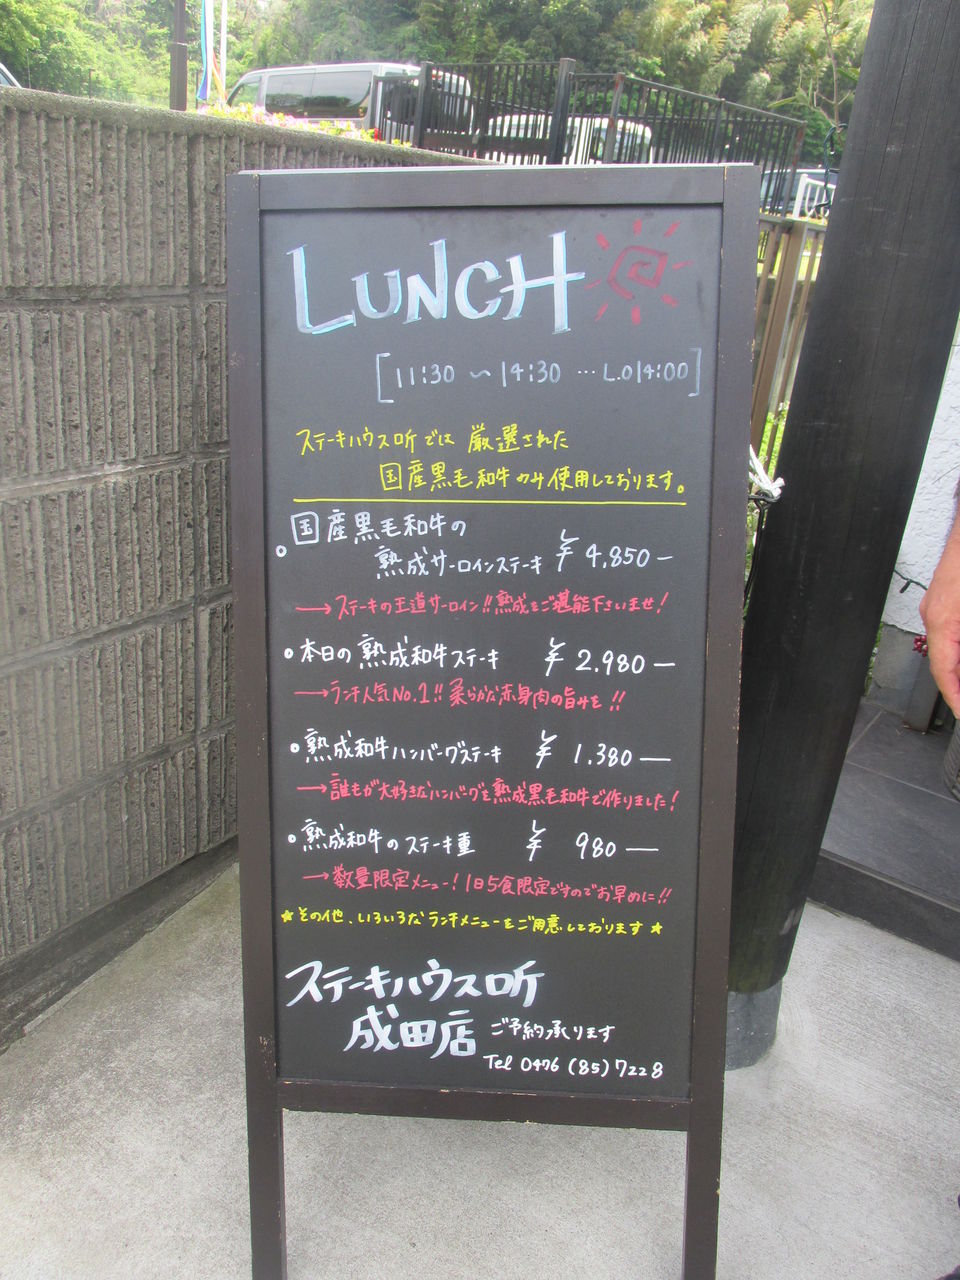 LUNCH
[11:30 〜 14:30 … L.O 14:00]
ステーキハウス听では 厳選された
国産黒毛和牛のみ使用しております。
国産黒毛和牛の
熟成サーロインステーキ ¥4.850ー
→ステーキの王道サーロイン!!熟成をご堪能下さいませ!
本日の熟成和牛ステーキ ¥2.980ー
→ランチ人気No.1!!柔らかな赤身肉の旨みを!!
熟成和牛ハンバーグステーキ ¥1.380ー
→誰もが大好きなハンバーグを熟成黒毛和牛で作りました!
熟成和牛のステーキ重 ¥980ー
→数量限定メニュー!1日5食限定ですのでお早めに!!
★その他、いろいろなランチメニューをご用意しております★
ステーキハウス听
成田店 ご予約承ります
Tel 0476(85)7228